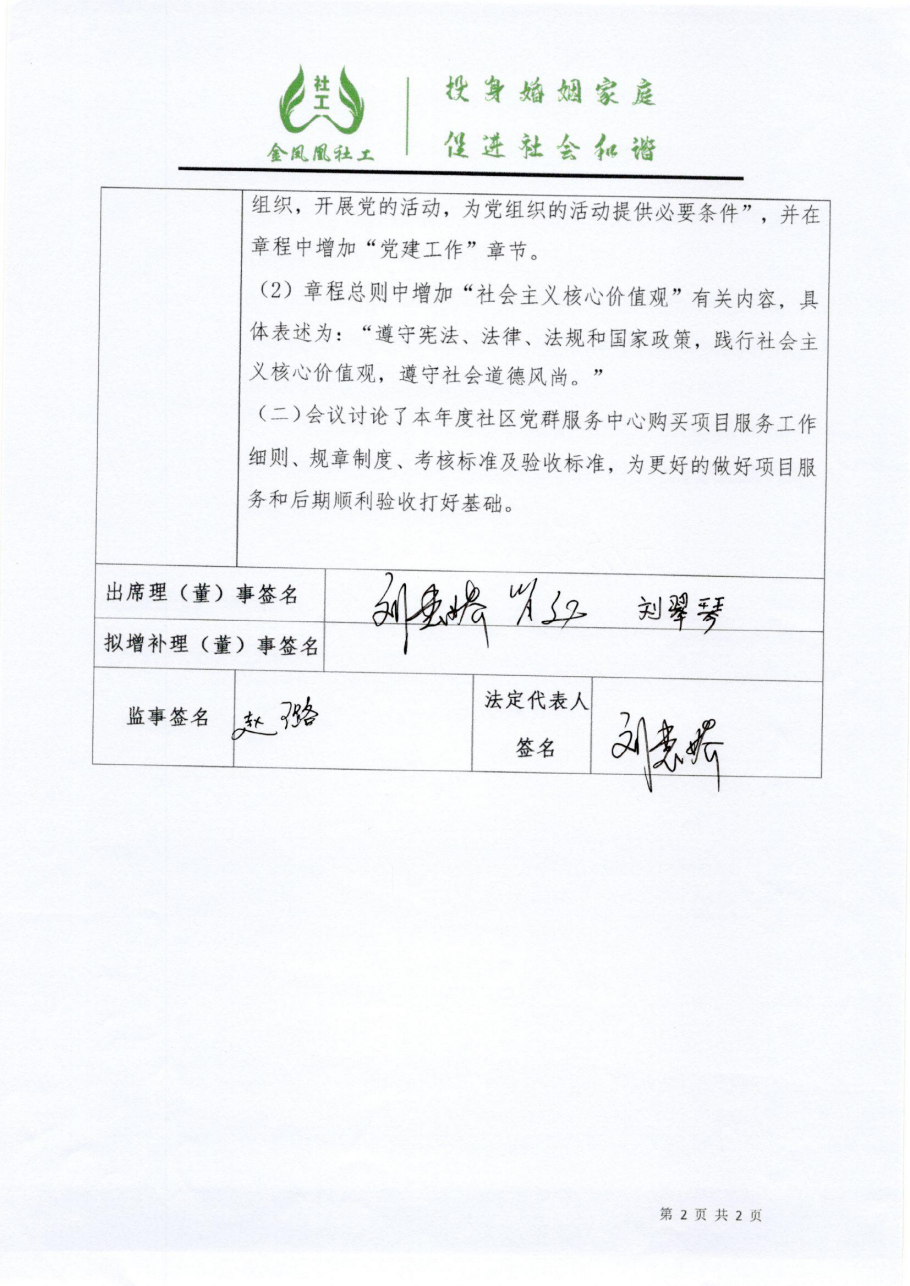 社
工
金凤凰社工
投身婚姻家庭
促进社会和谐
组织，开展党的活动，为党组织的活动提供必要条件”，并在
章程中增加“党建工作”章节。
（2）章程总则中增加“社会主义核心价值观”有关内容，具
体表述为：“遵守宪法、法律、法规和国家政策，践行社会主
义核心价值观，遵守社会道德风尚。”
（二）会议讨论了本年度社区党群服务中心购买项目服务工作
细则、规章制度、考核标准及验收标准，为更好的做好项目服
务和后期顺利验收打好基础。
出席理（董）事签名
刘翠琴
拟增补理（董）事签名
监事签名
赵璐
法定代表人
签名
第 2 页 共 2 页